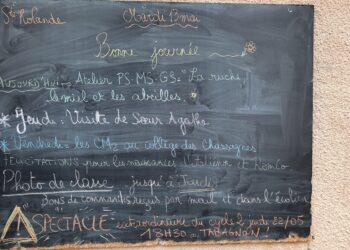 Ste Rolande
Mardi 13 mai
Bonne journée
Aujourd'hui : Atelier PS-MS-GS : "La ruche,
le miel et les abeilles.
* Jeudi : Visite de Sœur Agathe
* Vendredi : les CM2 au collège des Chassagnes
FÉLICITATIONS pour les naissances Natalienne et Roméo
Photo de classe jusqu'à Jeudi
Bons de commandes reçus par mail et dans l'école
! SPECTACLE extraordinaire du cycle 2 jeudi 22/05
18H30